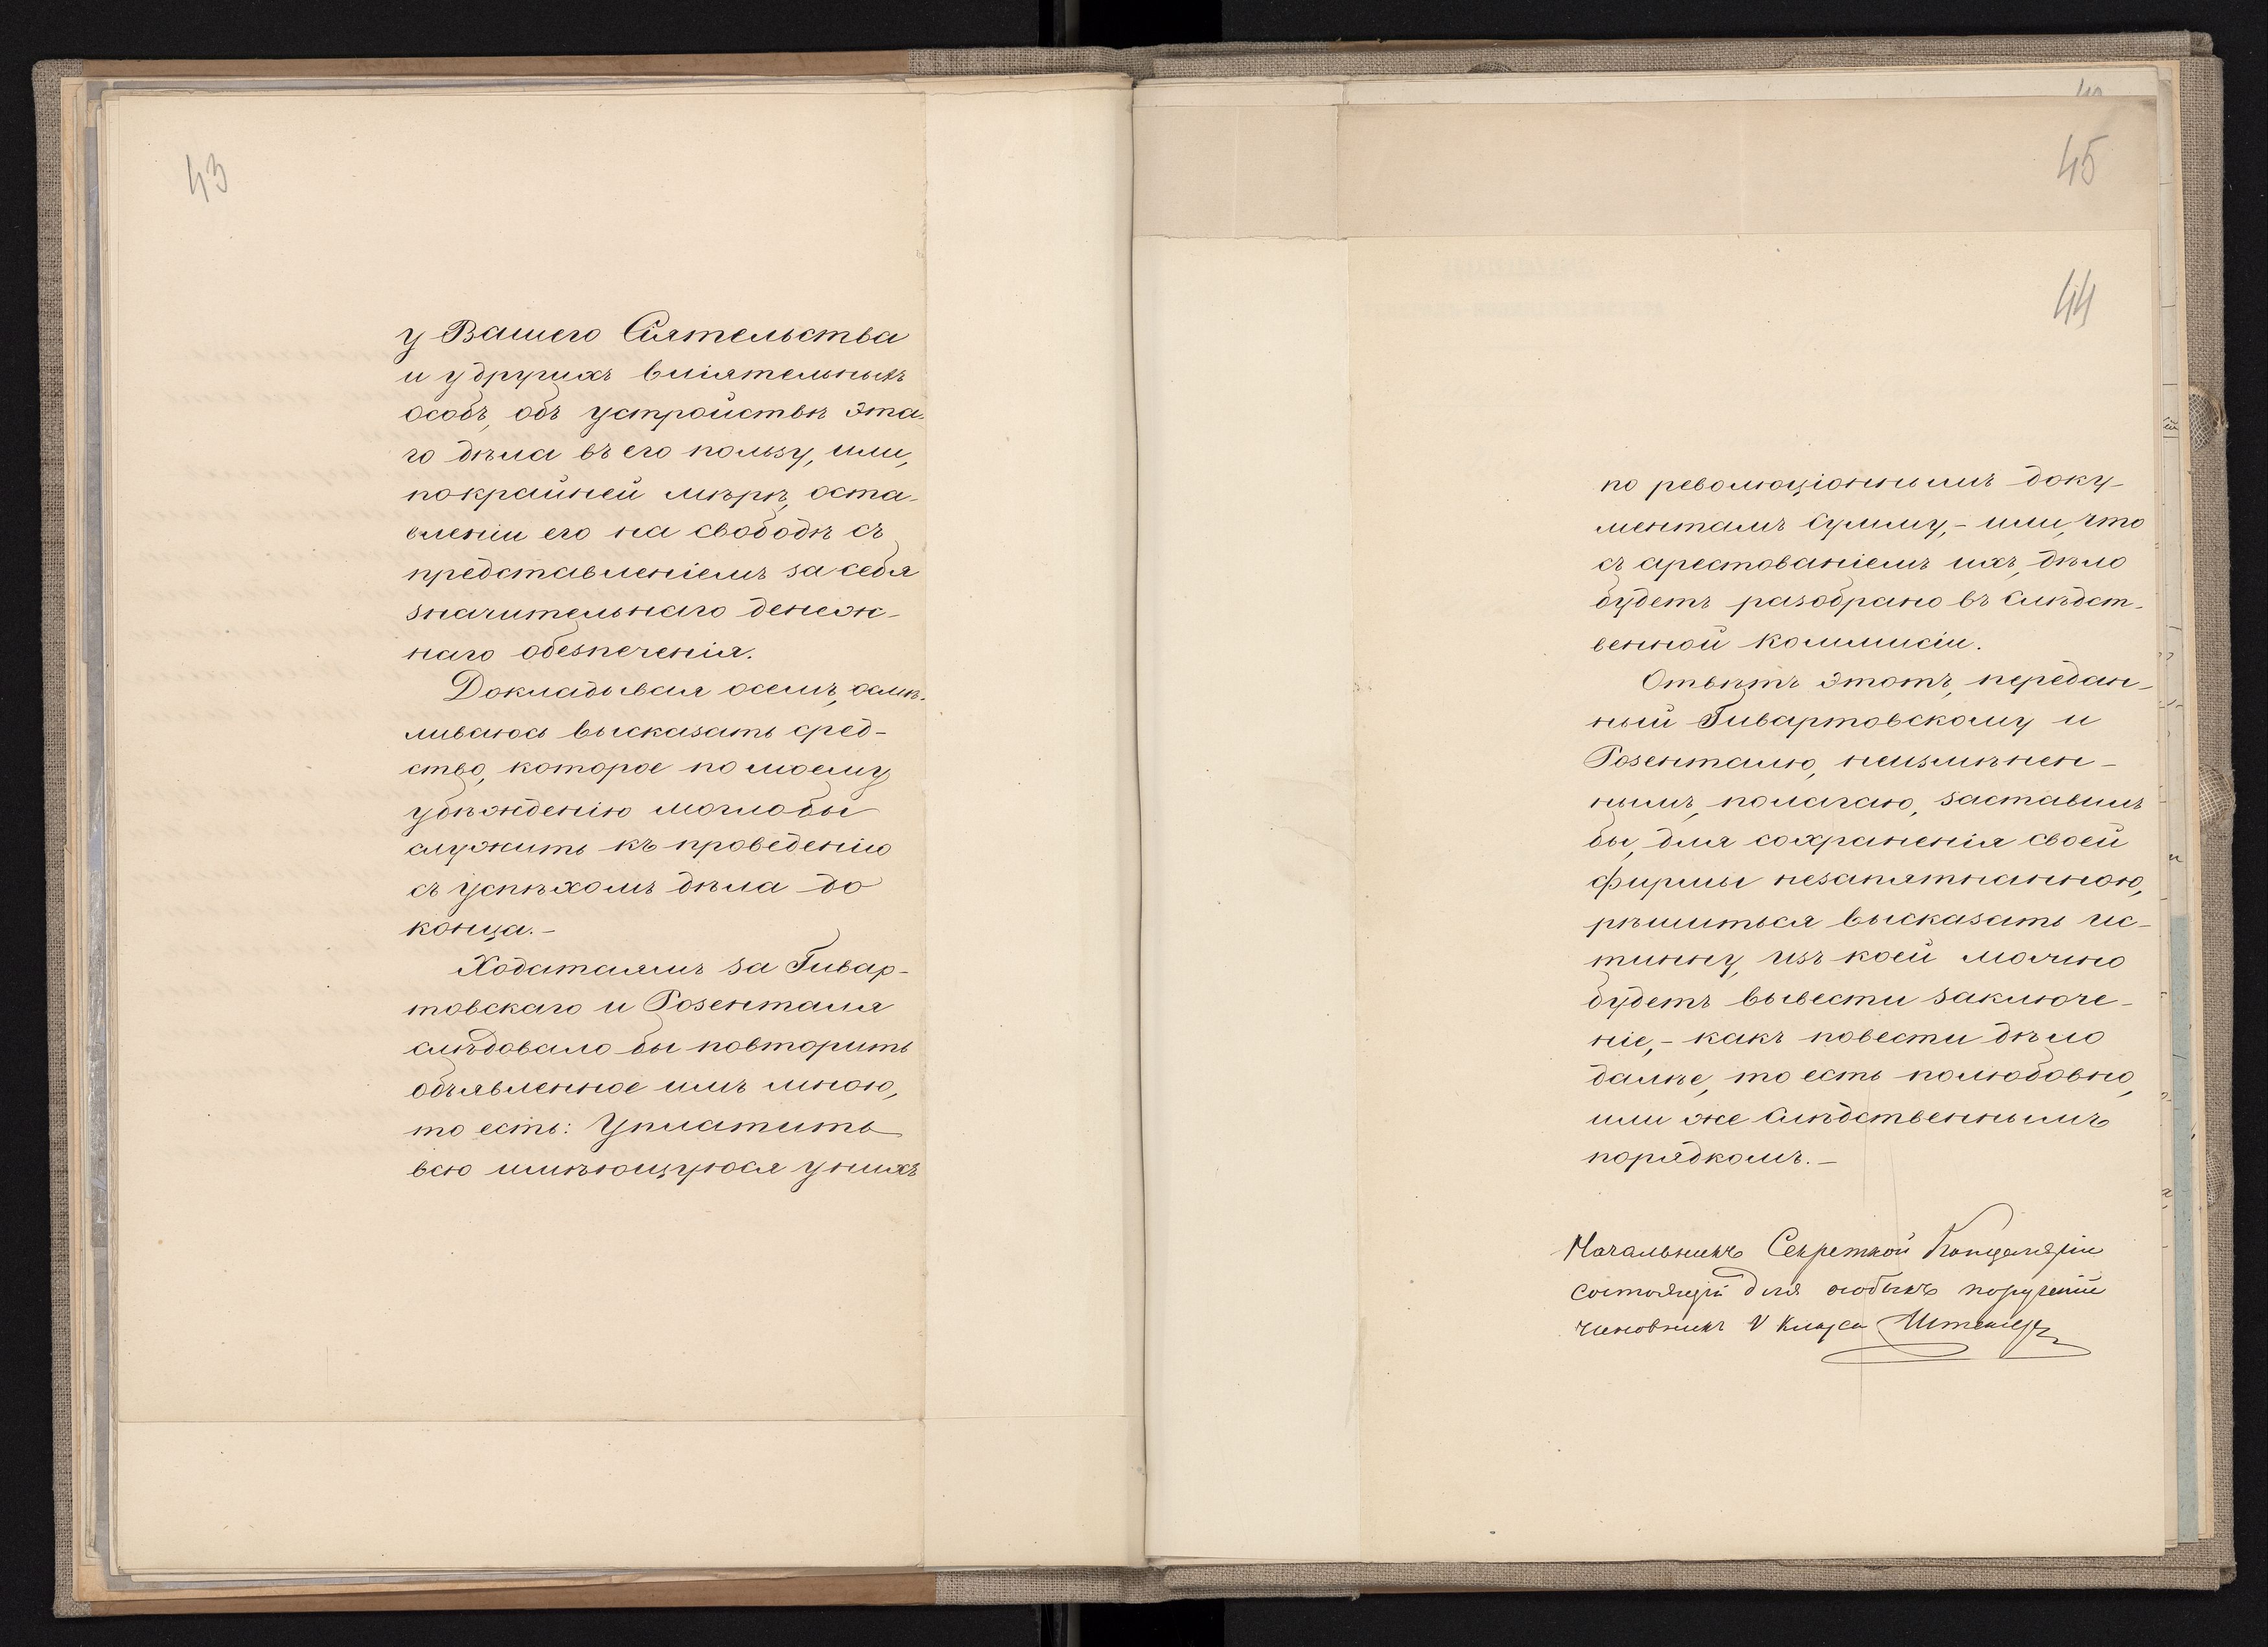 43
у Вашего Сіятельства
и у другихъ вліятельныхъ
особъ, объ устройствѣ эта-
го дѣла въ его пользу, или,
покрайней мѣрѣ, оста-
вленіи его на свободѣ съ
представленіемъ за себя
значительнаго денеж-
наго обезпеченія.
Докладывая осемъ, осмѣ-
ливаюсь высказать сред-
ство, которое по моему
убѣжденію моглобы
служить къ проведенію
съ успѣхомъ дѣла до
конца.-
Ходатаямъ за Гивар-
товскаго и Розенталя
слѣдовало бы повторить
объявленное имъ мною,
то есть: Уплатить
всю имѣющуюся у нихъ
45
44
по революціоннымъ доку-
ментамъ сумму,- или, что
съ арестованіемъ ихъ, дѣло
будетъ разобрано въ Слѣдст-
венной Коммисіи.
Отвѣтъ этотъ, передан-
ный Гивартовскому и
Розенталю, неизмѣнен-
нымъ, полагаю, заставилъ
бы, для сохраненія своей
фирмы незапятнанною,
рѣшиться высказать ис-
тинну, изъ коей можно
будетъ вывести заключе-
ніе,- какъ повести дѣло
далѣе, то есть полюбовно,
или же Слѣдственнымъ
порядкомъ.-
Начальникъ Секретной Канцеляріи
состоящій для особыхъ порученій
чиновникъ V класса